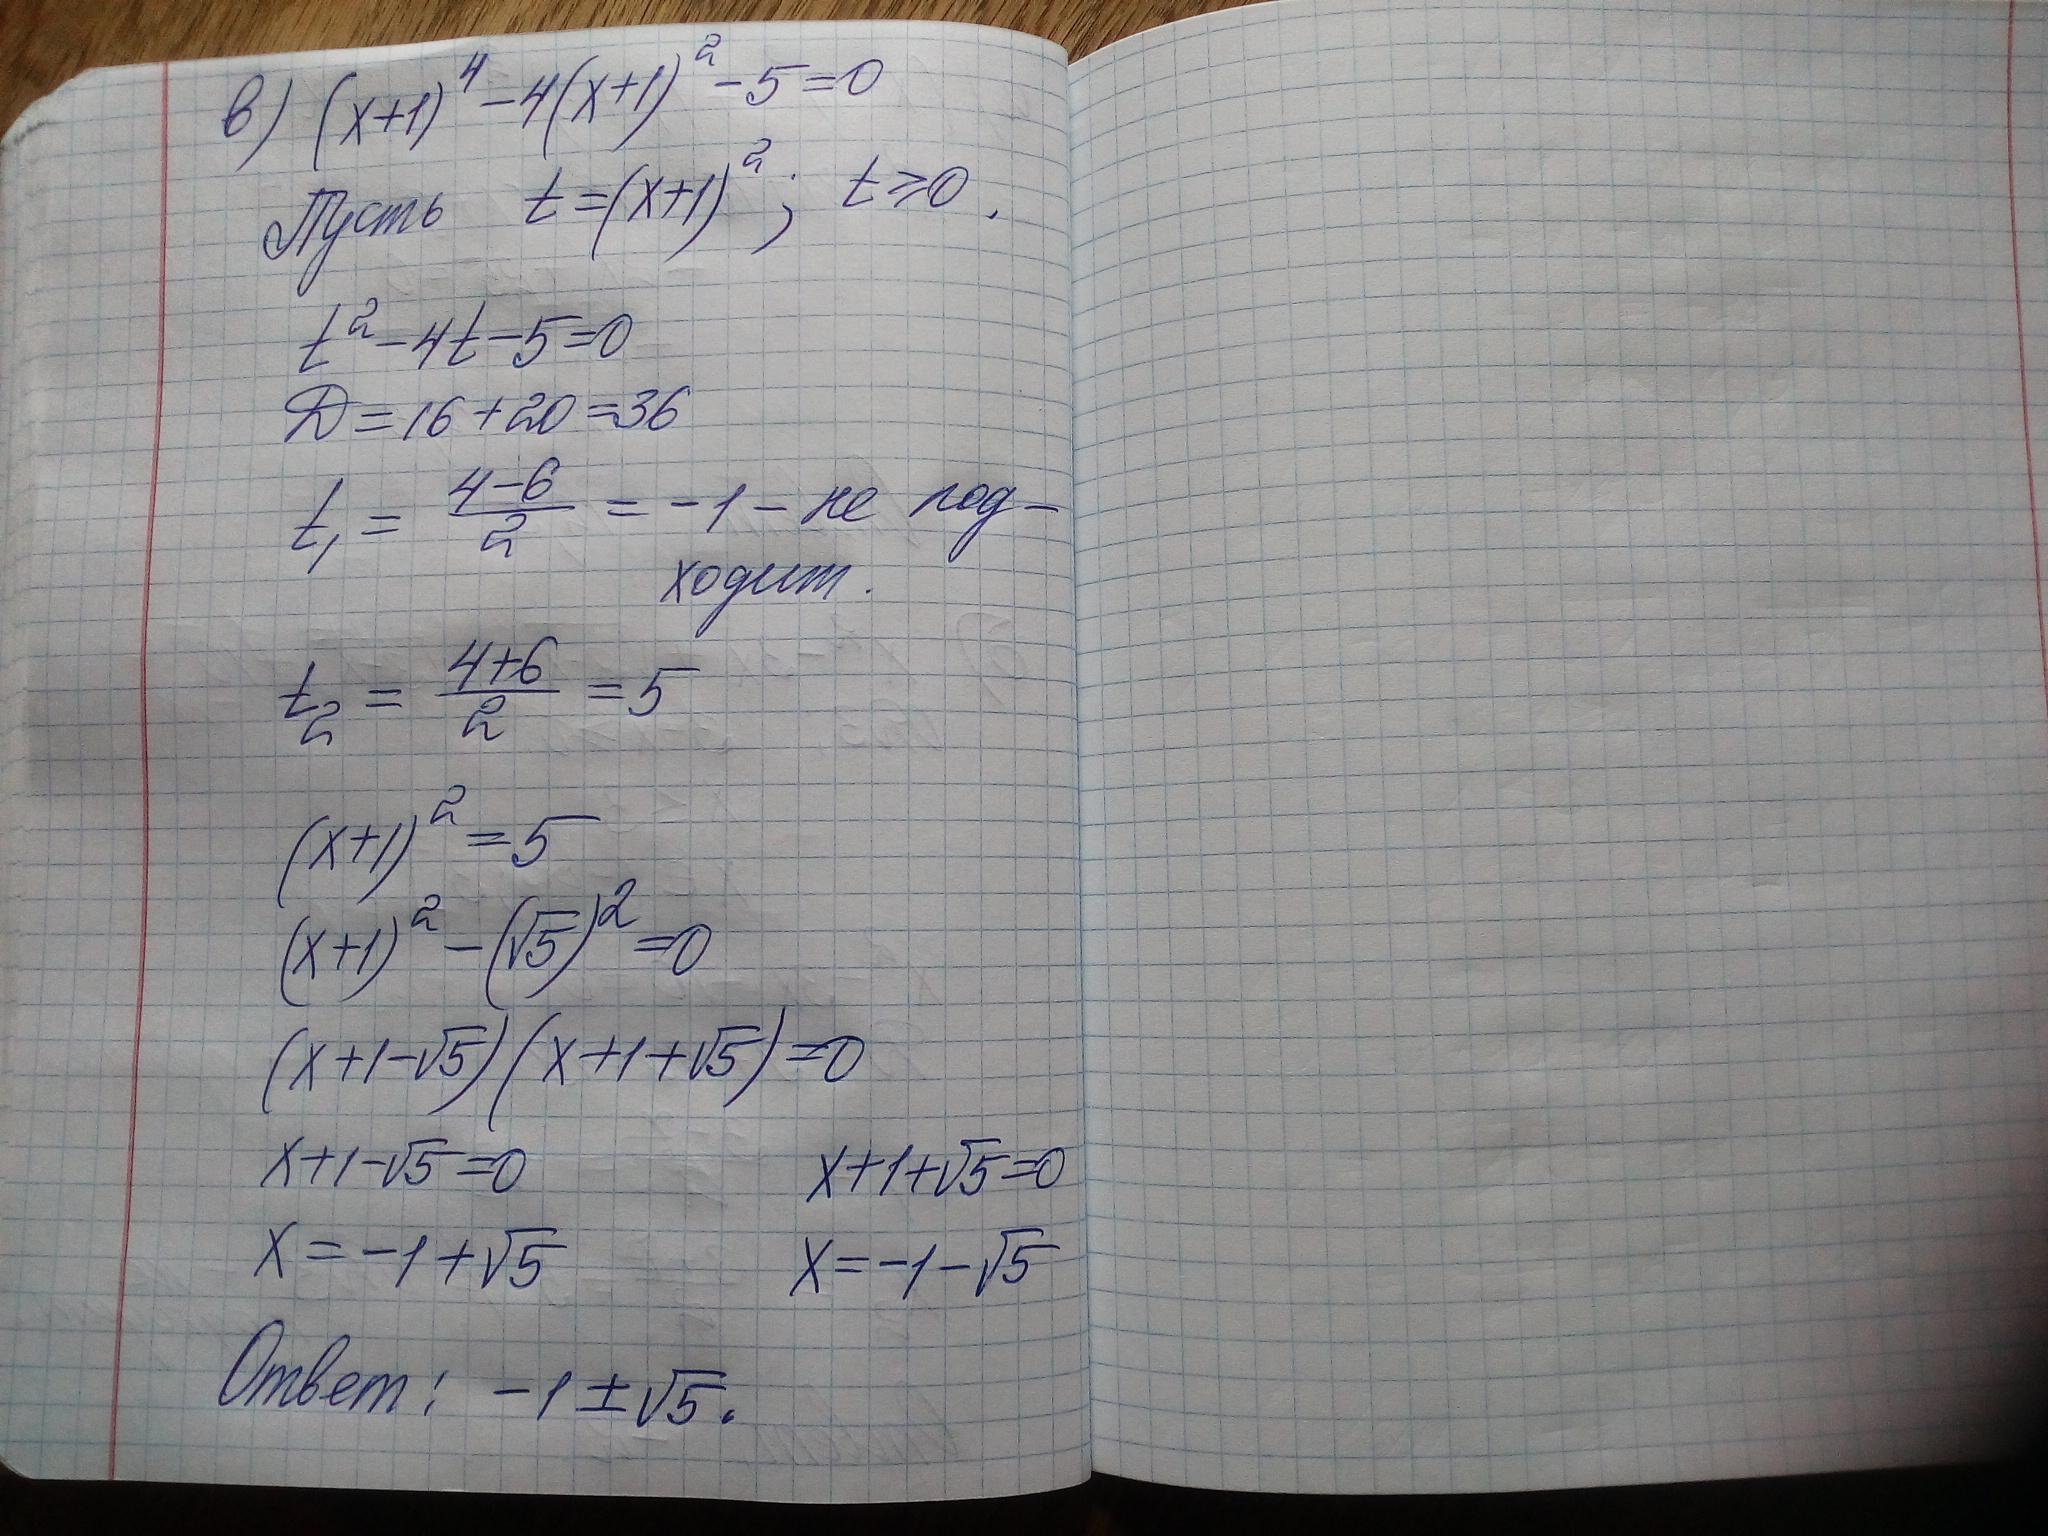 в) (x+1)⁴-4(x+1)²-5=0
Пусть t=(x+1)²; t≥0.
t²-4t-5=0
D=16+20=36
t₁ = (4-6)/2 = -1 - не под-
ходит.
t₂ = (4+6)/2 = 5
(x+1)²=5
(x+1)²-(√5)²=0
(x+1-√5)(x+1+√5)=0
x+1-√5=0 x+1+√5=0
x=-1+√5 x=-1-√5
Ответ: -1±√5.